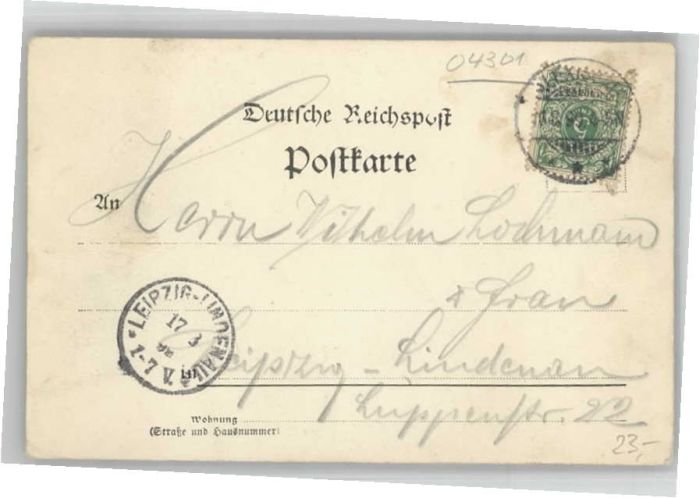 04301
Deutsche Reichspost
Postkarte
An
Herrn Wilhelm Lochmann
& Frau
in Leipzig-Lindenau
Luppenstr. 22
LEIPZIG-LINDENAU
17 3
1-7 V
Wohnung
(Straße und Hausnummer)
23,-